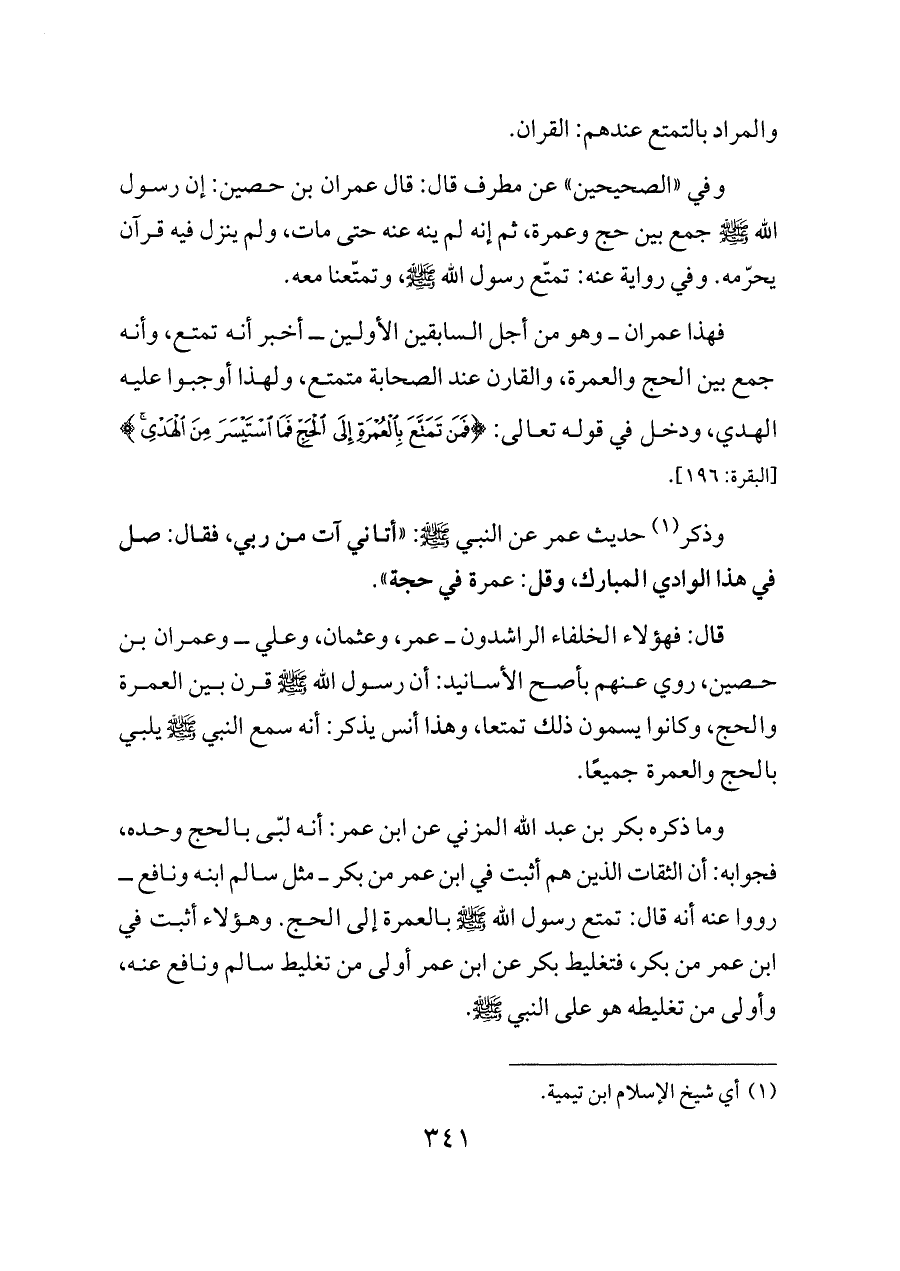 والمراد بالتمتع عندهم: القران.
وفي «الصحيحين» عن مطرف قال: قال عمران بن حصين: إن رسول
الله ﷺ جمع بين حج وعمرة، ثم إنه لم ينه عنه حتى مات، ولم ينزل فيه قرآن
يحرّمه. وفي رواية عنه: تمتّع رسول الله ﷺ، وتمتّعنا معه.
فهذا عمران ـ وهو من أجل السابقين الأولين ـ أخبر أنه تمتع، وأنه
جمع بين الحج والعمرة، والقارن عند الصحابة متمتع، ولهذا أوجبوا عليه
الهدي، ودخل في قوله تعالى: ﴿فَمَن تَمَتَّعَ بِٱلْعُمْرَةِ إِلَى ٱلْحَجِّ فَمَا ٱسْتَيْسَرَ مِنَ ٱلْهَدْيِ ۚ﴾
[البقرة: ١٩٦].
وذكر(١) حديث عمر عن النبي ﷺ: «أتاني آت من ربي، فقال: صل
في هذا الوادي المبارك، وقل: عمرة في حجة».
قال: فهؤلاء الخلفاء الراشدون ـ عمر، وعثمان، وعلي ـ وعمران بن
حصين، روي عنهم بأصح الأسانيد: أن رسول الله ﷺ قرن بين العمرة
والحج، وكانوا يسمون ذلك تمتعا، وهذا أنس يذكر: أنه سمع النبي ﷺ يلبي
بالحج والعمرة جميعًا.
وما ذكره بكر بن عبد الله المزني عن ابن عمر: أنه لبّى بالحج وحده،
فجوابه: أن الثقات الذين هم أثبت في ابن عمر من بكر ـ مثل سالم ابنه ونافع ـ
رووا عنه أنه قال: تمتع رسول الله ﷺ بالعمرة إلى الحج. وهؤلاء أثبت في
ابن عمر من بكر، فتغليط بكر عن ابن عمر أولى من تغليط سالم ونافع عنه،
وأولى من تغليطه هو على النبي ﷺ.
(١) أي شيخ الإسلام ابن تيمية.
٣٤١